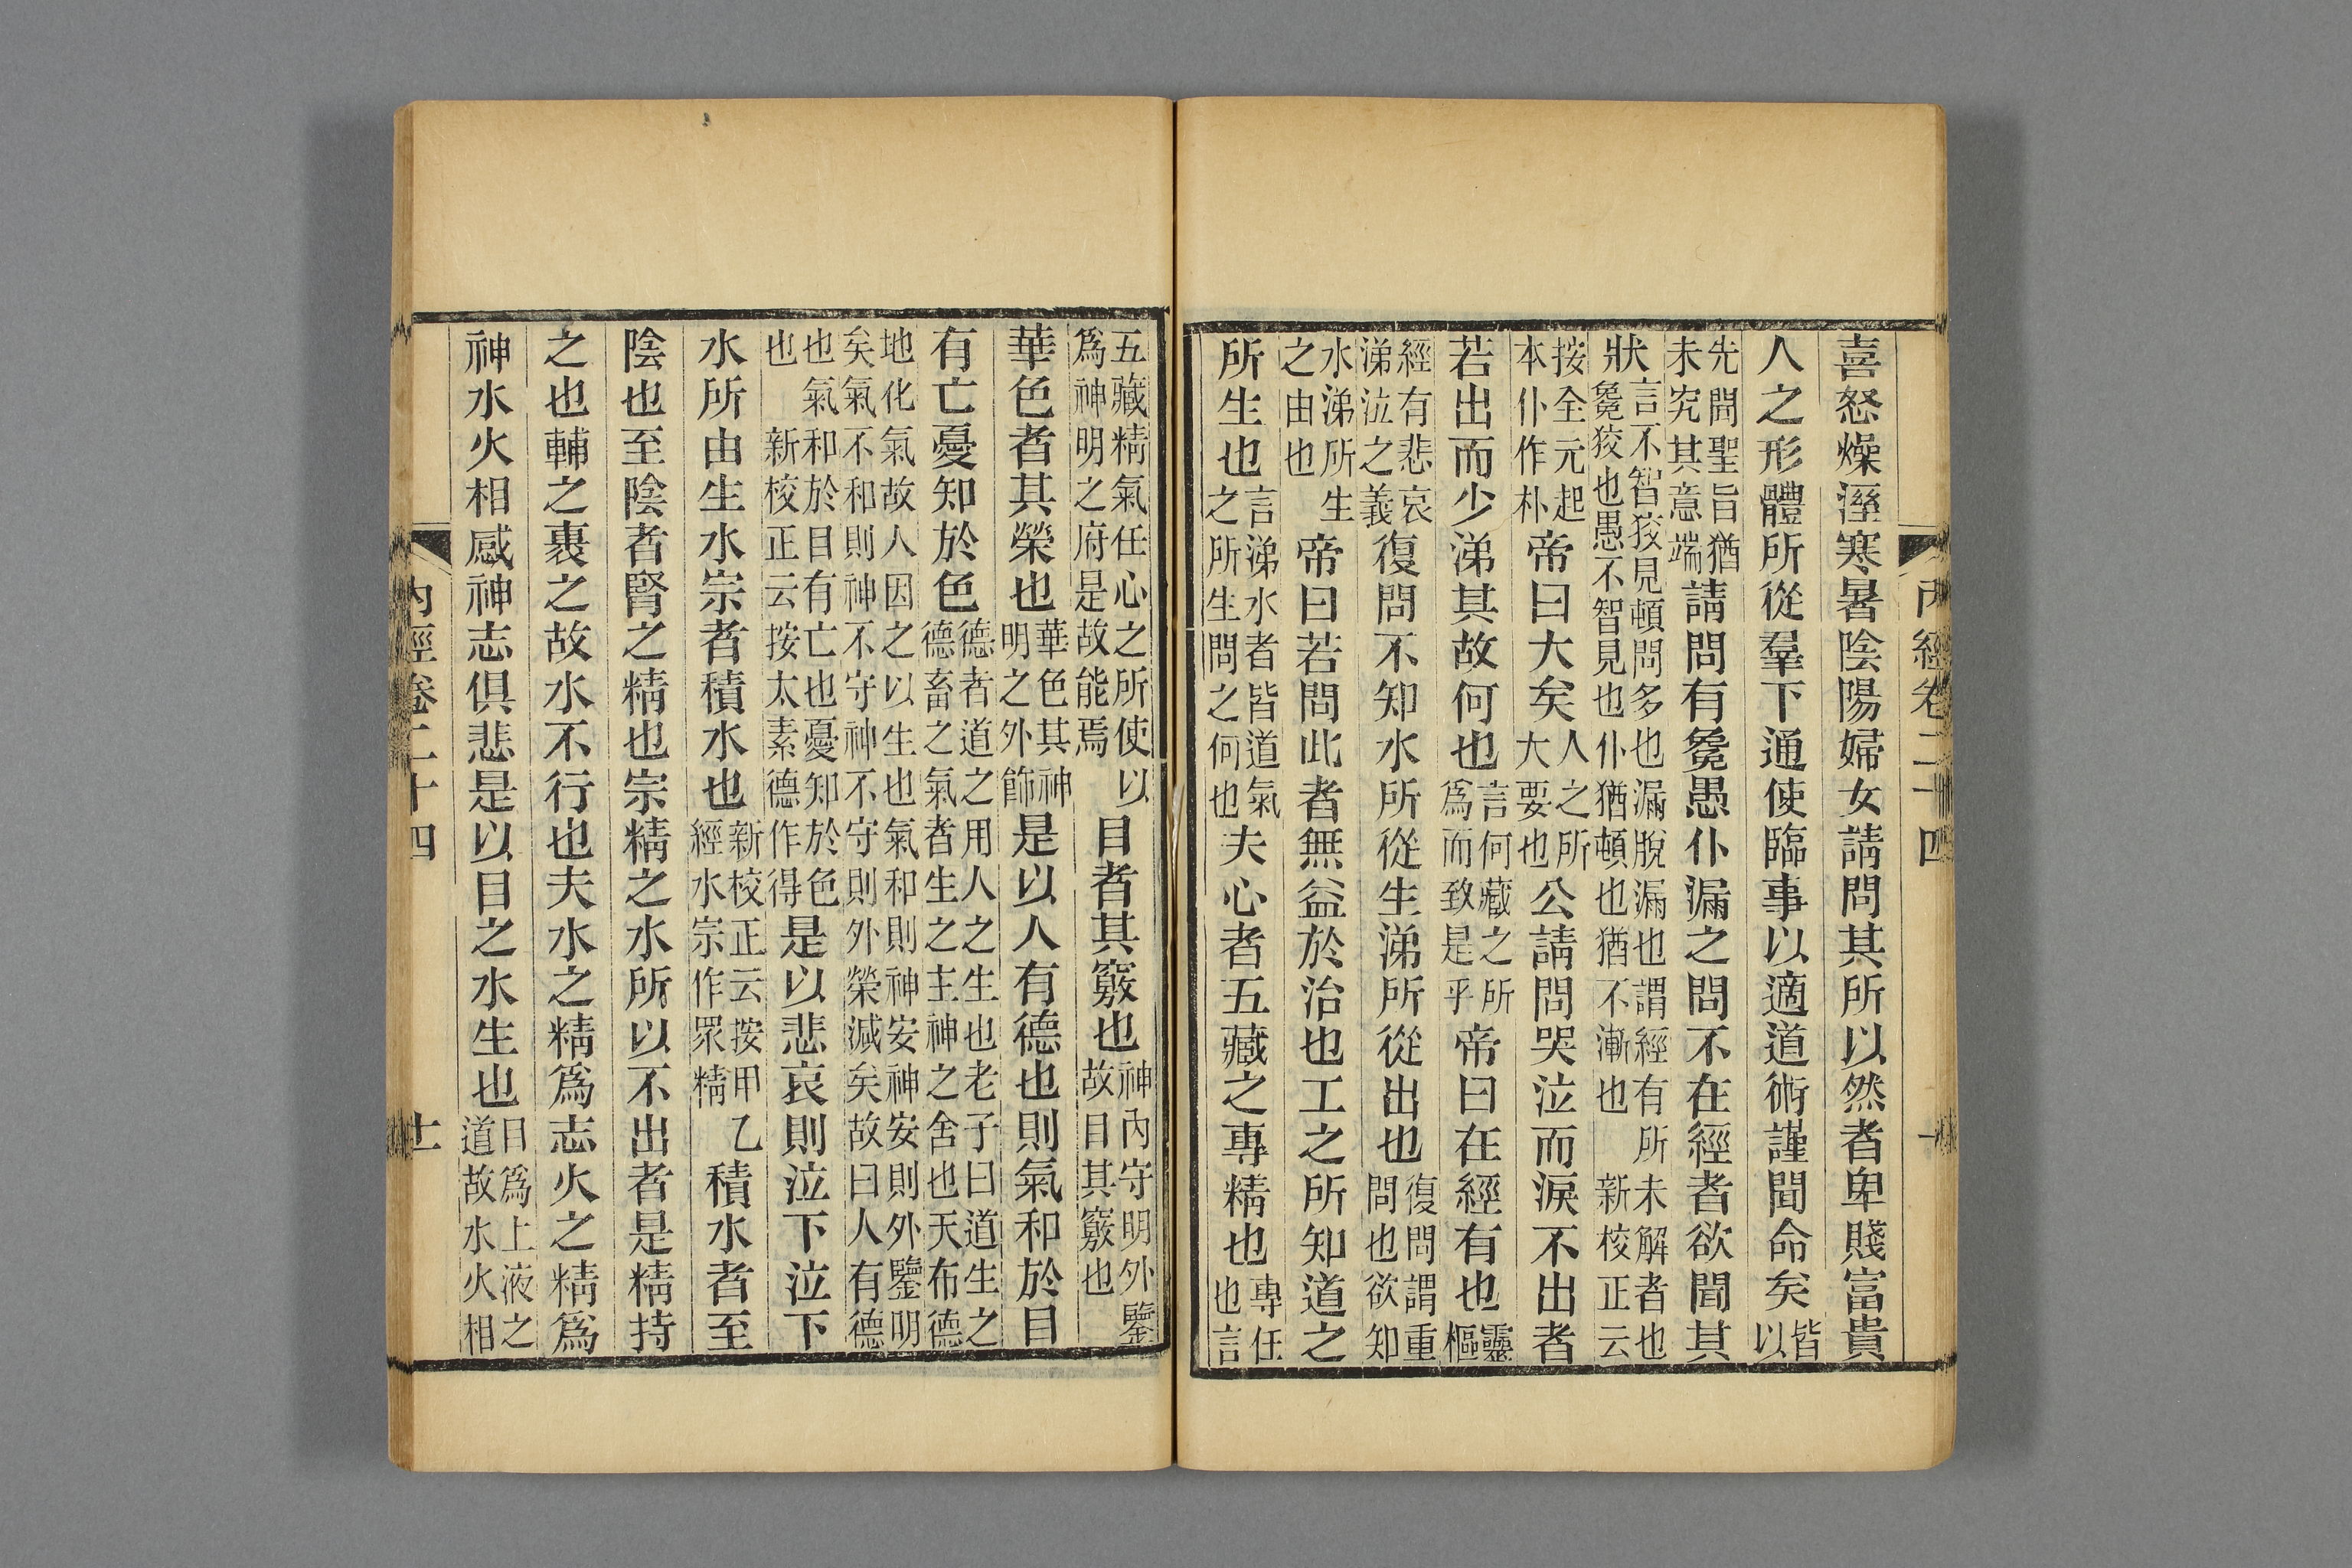 內經卷二十四
喜怒燥溼寒暑陰陽婦女請問其所以然者卑賤富貴
人之形體所從羣下通使臨事以適道術謹聞命矣皆以
先聞聖旨猶未究其意端請問有毚愚仆漏之問不在經者欲聞其
狀言不智狡見頓問多也漏脫漏也謂經有所未解者也毚狡也愚不智見也仆猶頓也猶不漸也 新校正云
按全元起本仆作朴帝曰大矣人之所大要也公請問哭泣而淚不出者
若出而少涕其故何也言何藏之所爲而致是乎帝曰在經有也靈樞
經有悲哀涕泣之義復問不知水所從生涕所從出也復問謂重問也欲知
水涕所生之由也帝曰若問此者無益於治也工之所知道之
所生也言涕水者皆道氣之所生問之何也夫心者五藏之專精也專任也言
五藏精氣任心之所使以爲神明之府是故能焉目者其竅也神內守明外鑒故目其竅也
華色者其榮也華色其神明之外飾是以人有德也則氣和於目
有亡憂知於色德者道之用人之生也老子曰道生之德畜之氣者生之主神之舍也天布德
地化氣故人因之以生也氣和則神安神安則外鑒明矣氣不和則神不守神不守則外榮減矣故曰人有德
也氣和於目有亡也憂知於色也 新校正云按太素德作得是以悲哀則泣下泣下
水所由生水宗者積水也新校正云按甲乙經水宗作眾精積水者至
陰也至陰者腎之精也宗精之水所以不出者是精持
之也輔之裹之故水不行也夫水之精爲志火之精爲
神水火相感神志俱悲是以目之水生也目爲上液之道故水火相
內經卷二十四 十一